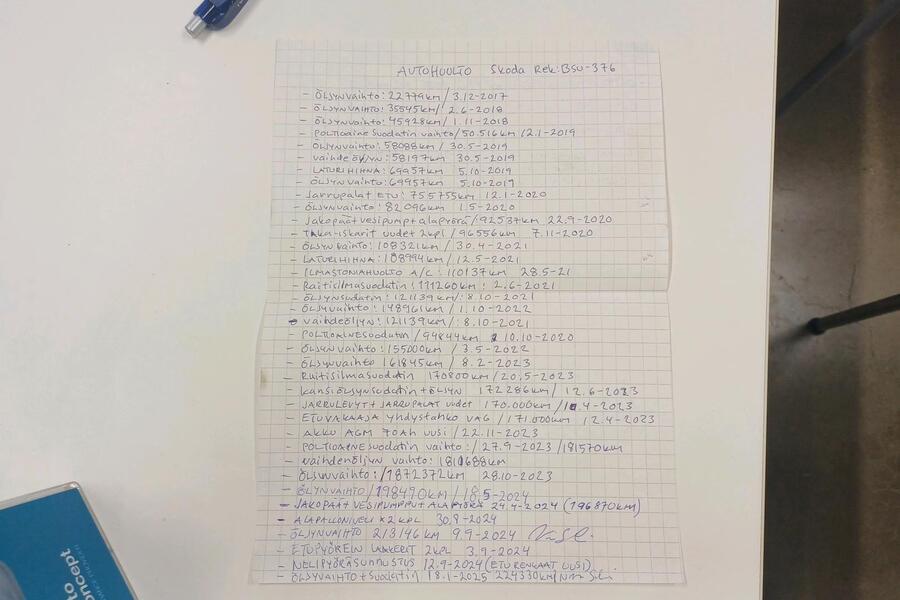 AUTOHUOLTO Skoda Rek:BSU-376
- ÖLJYNVAIHTO: 22779km / 3.12-2017
- ÖLJYNVAIHTO: 35545km / 2.6-2018
- ÖLJYNVAIHTO: 45928km / 1.11-2018
- POLTTOAINE SUODATIN VAIHTO/50.516km /2.1-2019
- ÖLJYNVAIHTO: 58088km / 30.5-2019
- vaihdeÖLJYN: 58197km 30.5-2019
- LATURIHIHNA: 69957km 5.10-2019
- ÖLJYNVAIHTO: 69957km 5.10-2019
- Jarrupalat ETU: 755755km 12.1-2020
- ÖLJYNVAIHTO: 82096km 1.5-2020
- Jakopäät vesipump+alapyörä/92537km 22.9-2020
- Taka-iskarit uudet 2kpl /96556km 7.11-2020
- ÖLJYNVAIHTO: 108321km / 30.4-2021
- LATURIHIHNA: 108994km / 12.5-2021
- ILMASTONIAHUOLTO A/C: 110137km 28.5-21
- Raitisilmasuodatin: 111260km: 2.6-2021
- ÖLJYNSUDATIN: 121139km/: 8.10-2021
- ÖLJYVAIHTO: 148961km / 1.10-2022
- vaihdeöljyn: 121139km/: 8.10-2021
POLTTOAINESUODATIN /94844km 10.10-2020
- ÖLJYNVAIHTO: 155000km / 3.5-2022
- ÖLJYNVAIHTO 161845km / 8.2-2023
- Raitisilmasuodatin 170800km / 20.5-2023
- kansiöljysuodatin+ÖLJYN 172286km / 12.6-2023
- JARRULEVYT+JARRUPALAT uudet 170.000km / .4-2023
- ETUVAKAAJA yhdystanko VAG /171.000km 12.4-2023
- AKKU AGM 70Ah UUSI / 22.11-2023
- POLTTOAINESUODATIN VAIHTO: /27.9-2023 /181570km
- vaihdenöljyn vaihto: 1810688km
- ÖLJYNVAIHTO: /1872372km 28.10-2023
- ÖLJYNVAIHTO/198490km / 18.5-2024
- JAKOPÄÄT VESIPUMPPUT ALAPYÖRÄ 24.4-2024 (196870km)
- ALAPALLONIVELI x2 KPL 30.8-2024
- ÖLJYNVAIHTO 213146 km 9.9-2024
- ETUPYÖRIEN LAAKERIT 2KPL 3.9-2024
- NELIPYÖRÄSUUNTAUS 12.9-2024 (ETURENKAAT UUSI)
- ÖLJYVAIHTO + Suodatin 18.1-2025 224330km